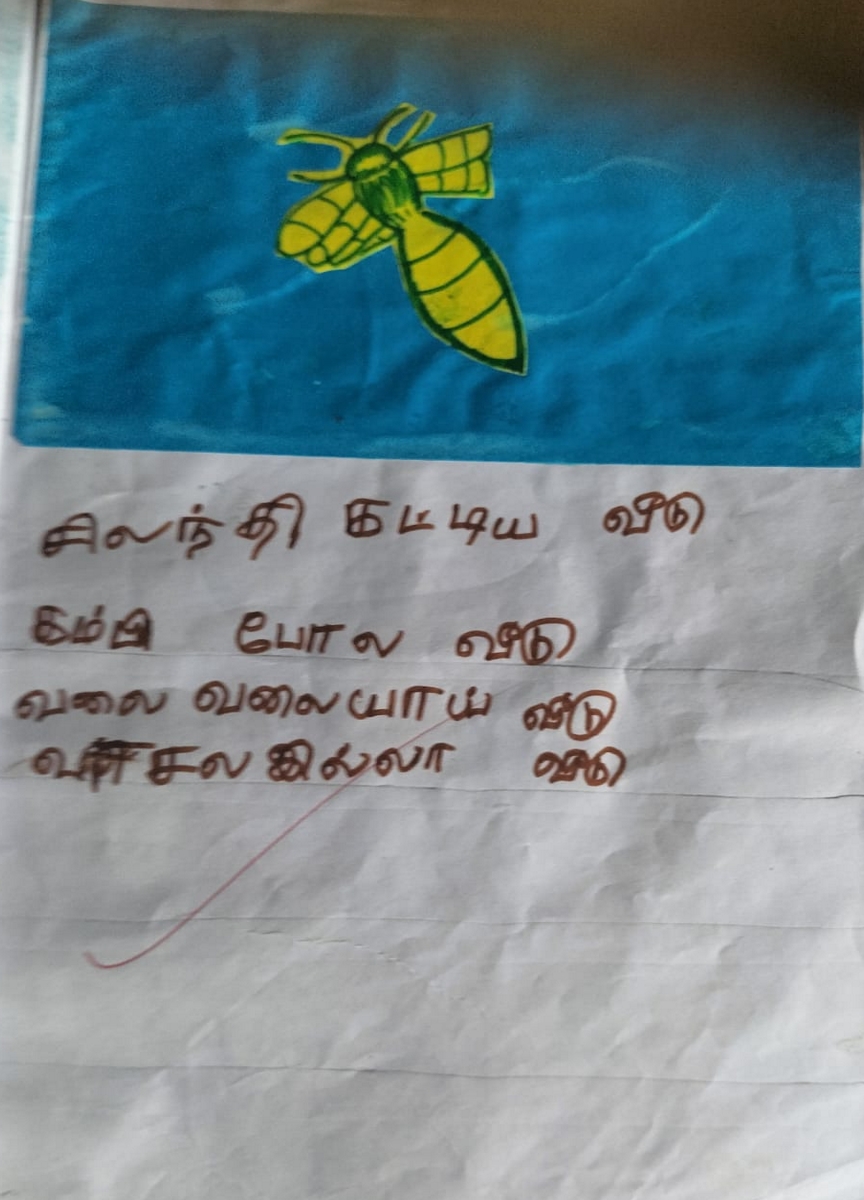 சிலந்தி கட்டிய வீடு
கம்பி போல வீடு
வலை வலையாய் வீடு
வாசல இல்லா வீடு